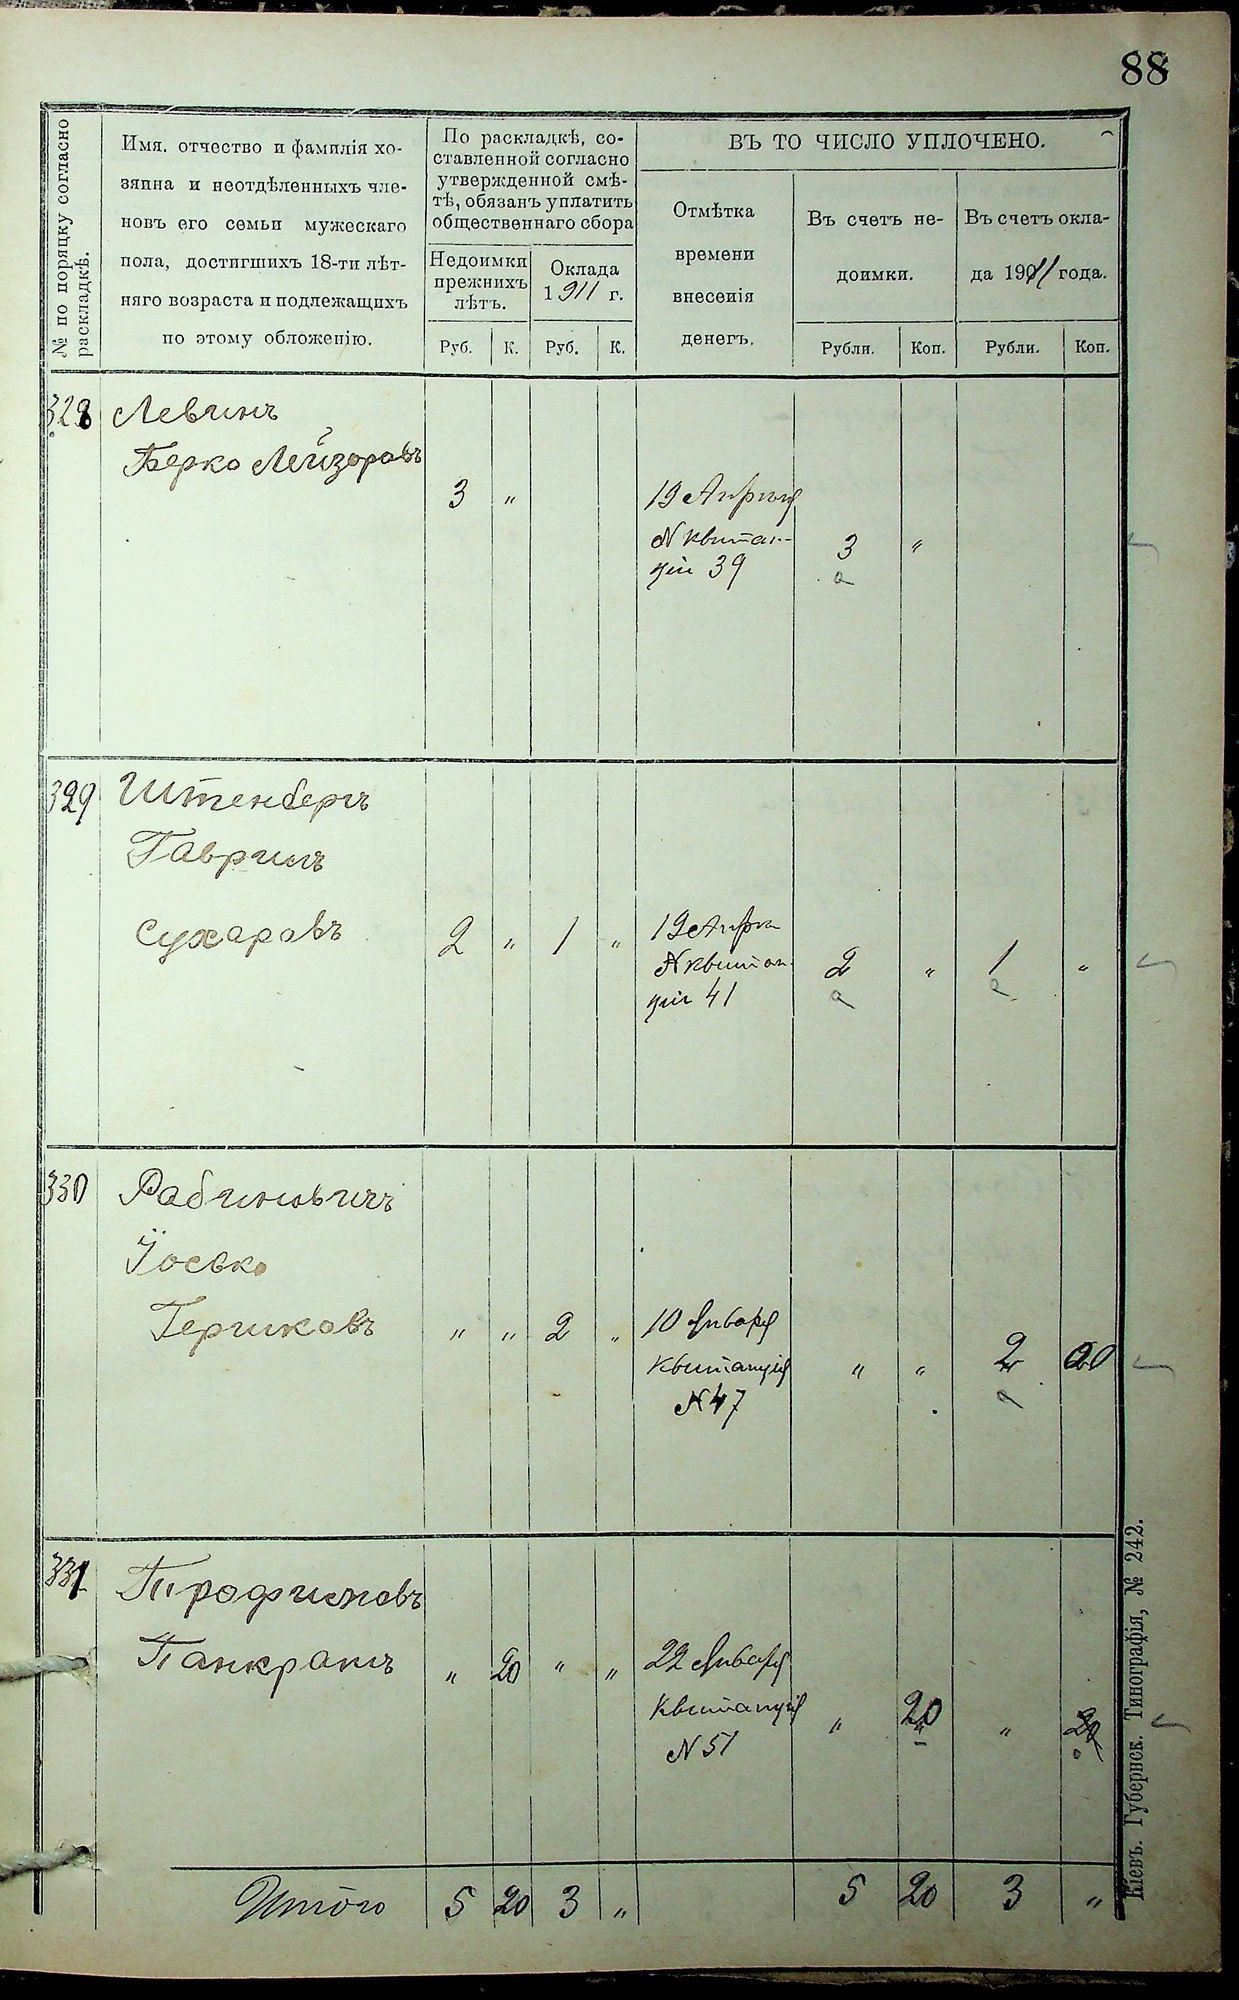 88
№ по порядку согласно
раскладкѣ.
Имя. отчество и фамилія хо-
зяина и неотдѣленныхъ чле-
новъ его семьи мужескаго
пола, достигшихъ 18-ти лѣт-
няго возраста и подлежащихъ
по этому обложенію.
По раскладкѣ, со-
ставленной согласно
утвержденной смѣ-
тѣ, обязанъ уплатить
общественнаго сбора
Недоимки
прежнихъ
лѣтъ.
Оклада
1911 г.
Руб. К. Руб. К.
ВЪ ТО ЧИСЛО УПЛОЧЕНО.
Отмѣтка
времени
внесенія
денегъ.
Въ счетъ не-
доимки.
Въ счетъ окла-
да 1911 года.
Рубли. Коп. Рубли. Коп.
328 Левинъ
Берко Лейзоровъ
3 " 19 Апрѣля
N квитан-
ціи 39
3 "
329 Штенбергъ
Гаврилъ
Сухаровъ
2 " 1 " 19 Апрѣ
N квитан-
ціи 41
2 " 1 "
330 Рабиновичъ
Іосько
Гершковъ
" " 2 " 10 Января
Квитанція
N 47
" " 2 00
331 Трофимовъ
Панкратъ
" 20 " " 22 Января
Квитанція
N 51
" 20 "
Итого 5 20 3 " 5 20 3 "
Кіевъ. Губернск. Типографія, № 242.